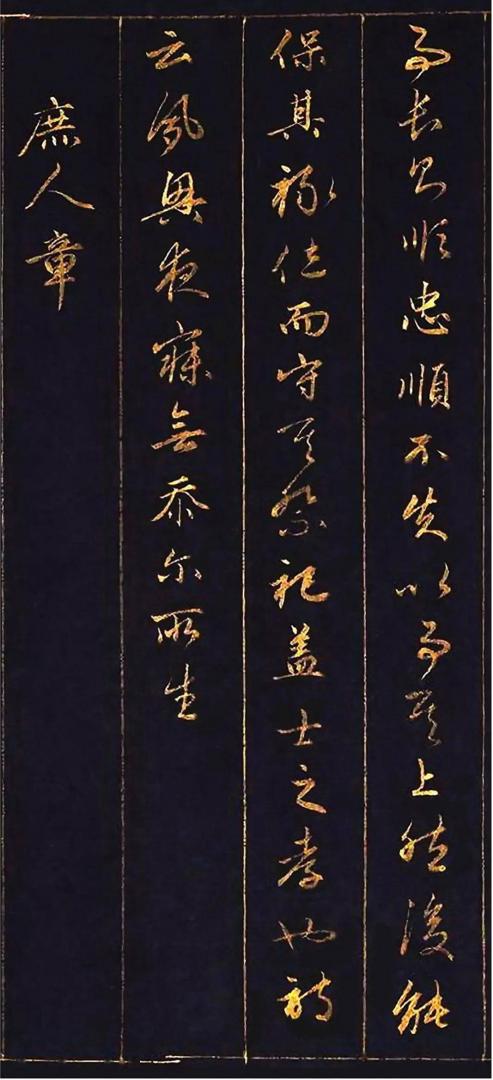 事长则順忠順不失以事其上然後能
保其祿位而守其祭祀盖士之孝也诗
云夙興夜寐無忝尔所生
庶人章